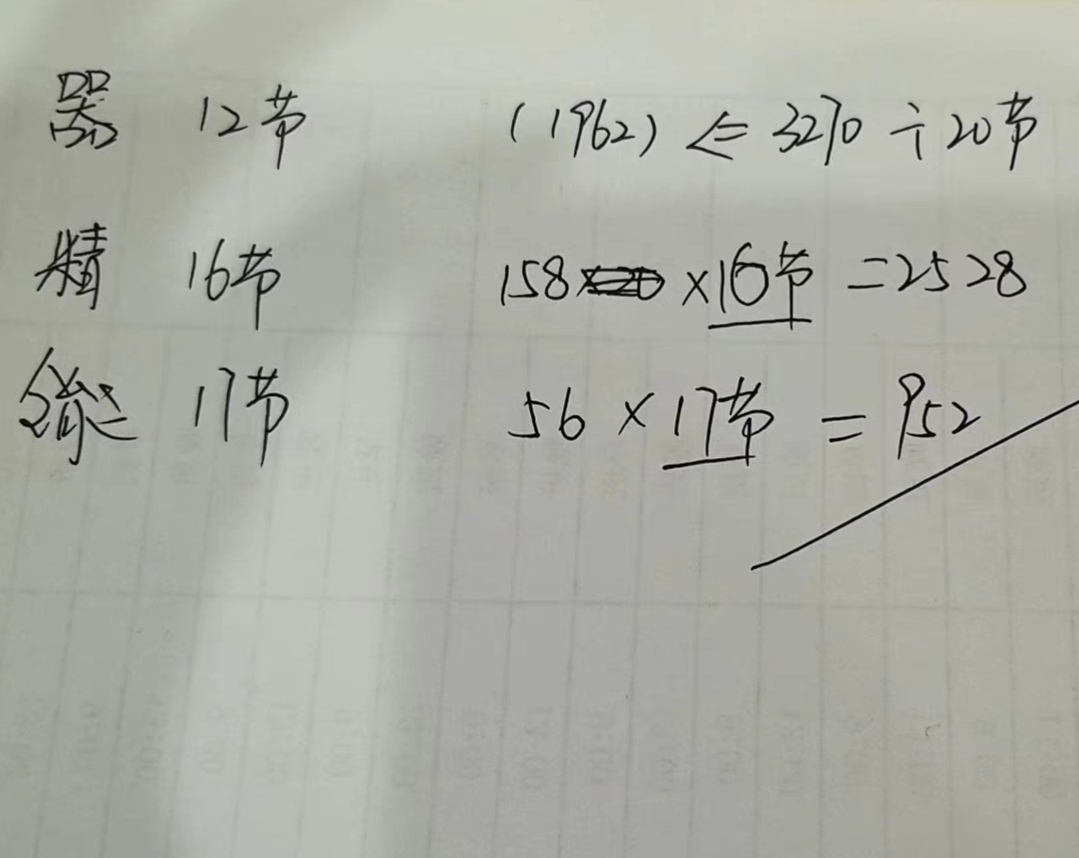 器 12节 (1962) ⇐ 3270 ÷ 20节
精 16节 158 ×16节 = 2528
17节 56 × 17节 = 952